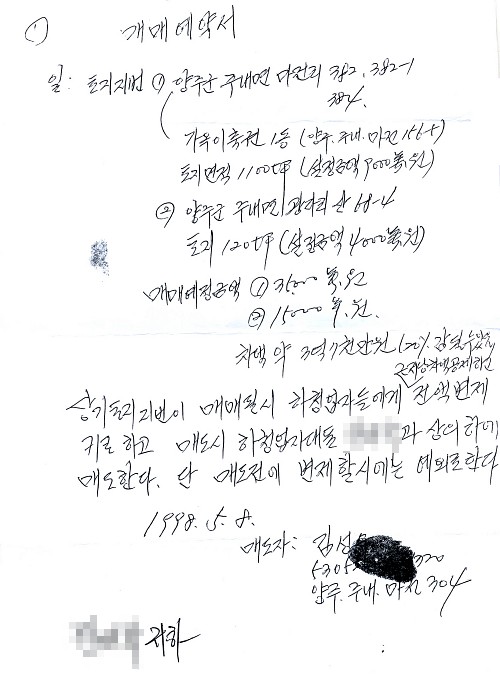 ① 개매예약서
일: 토지지번 ① 양주군 주내면 마전리 382, 382-1
384.
가옥이축권 1동 (양주.주내.마전 156-5)
토지면적 1100평 (설정금액 9000萬원)
② 양주군 주내면 산 68-4
토지 120평 (설정금액 4000萬원)
매매예정금액 ① 35,000 萬.원
② 15,000 萬.원.
차액 약 3억7천만원 (20% 감될수있음
전액변제
상기토지지번이 매매될시 하청업자들에게
키로 하고 매도시 하청업자대표 과 상의하에
매도한다. 단 매도전에 변제할시에는 예외로한다
1998. 5. 8.
매도자: 김성
320
양주.주내.마전 304
귀하